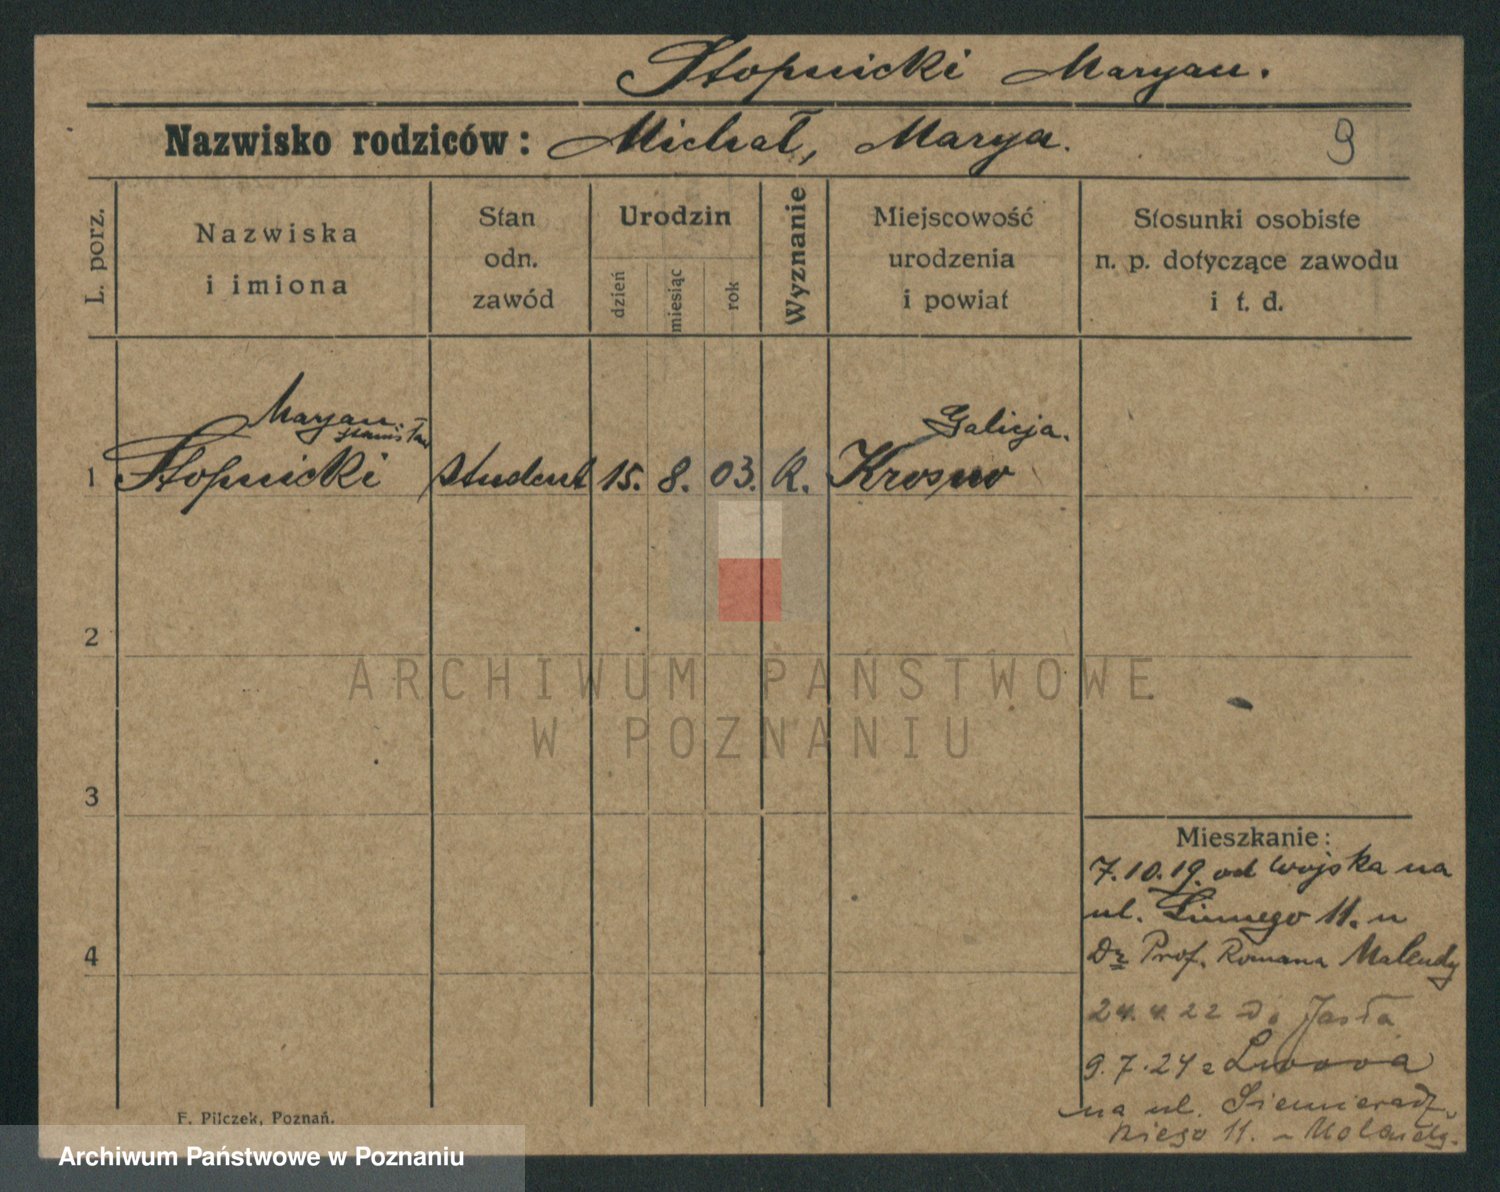 Stopnicki Maryan.
Nazwisko rodziców: Michał, Marya.
9
L. porz.
Nazwiska
i imiona
Stan
odn.
zawód
Urodzin
dzień
miesiąc
rok
Wyznanie
Miejscowość
urodzenia
i powiat
Stosunki osobiste
n. p. dotyczące zawodu
i t. d.
Maryan Stanisław
Galicja.
1 Stopnicki student 15. 8. 03. R. Krosno
2
ARCHIWUM PAŃSTWOWE
W POZNANIU
3
4
Mieszkanie:
7.10.19. od wojska na
ul. 11. u
Dr Prof. Romana Malendy
24. 4. 22 Do Jasła
9.7.24 z Lwowa
na ul. Siemieradz
kiego 11. u
F. Pilczek, Poznań.
Archiwum Państwowe w Poznaniu